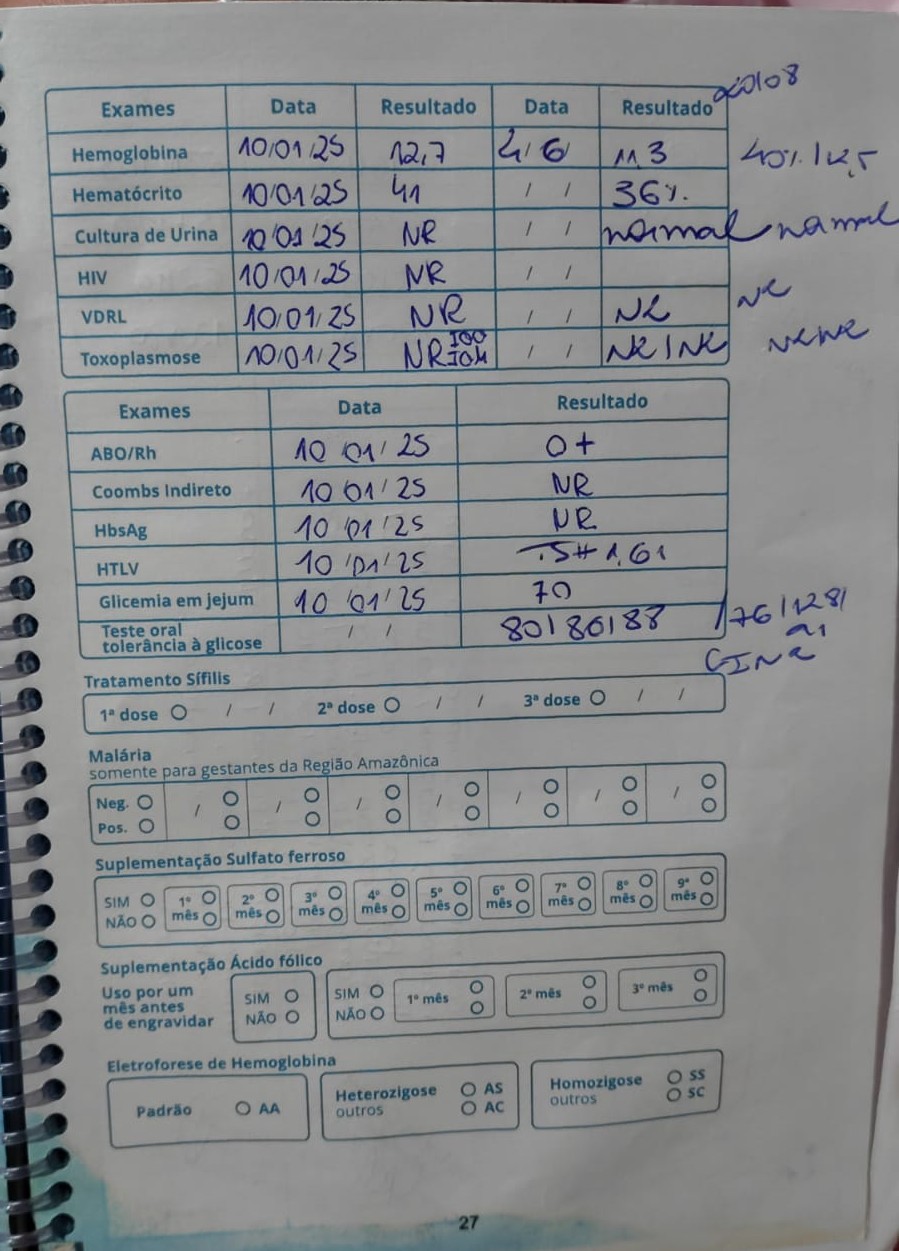 Exames Data Resultado Data Resultado 20108
Hemoglobina 10/01/25 12,7 4/6/ 11,3 40%. / 12,5
Hematócrito 10/01/25 41 / / 36%.
Cultura de Urina 10/01/25 NR / / normal normal
HIV 10/01/25 NR / /
VDRL 10/01/25 NR / / NR NR
Toxoplasmose 10/01/25 NR / / NR/NR NR NR
Exames Data Resultado
ABO/Rh 10/01/25 O+
Coombs Indireto 10/01/25 NR
HbsAg 10/01/25 NR
HTLV 10/01/25 TSH 1,61
Glicemia em jejum 10/01/25 70
Teste oral
tolerância à glicose / / 80/80/88 /76/128/
Tratamento Sífilis
1ª dose / / 2ª dose / / 3ª dose / /
Malária
somente para gestantes da Região Amazônica
Neg. / / / / / / /
Pos.
Suplementação Sulfato ferroso
SIM 1º 2º 3º 4º 5º 6º 7º 8º 9º
NÃO mês mês mês mês mês mês mês mês mês
Suplementação Ácido fólico
Uso por um
mês antes
de engravidar
SIM
NÃO
SIM
NÃO
1º mês 2º mês 3º mês
Eletroforese de Hemoglobina
Padrão AA
Heterozigose AS
outros AC
Homozigose SS
outros SC
27